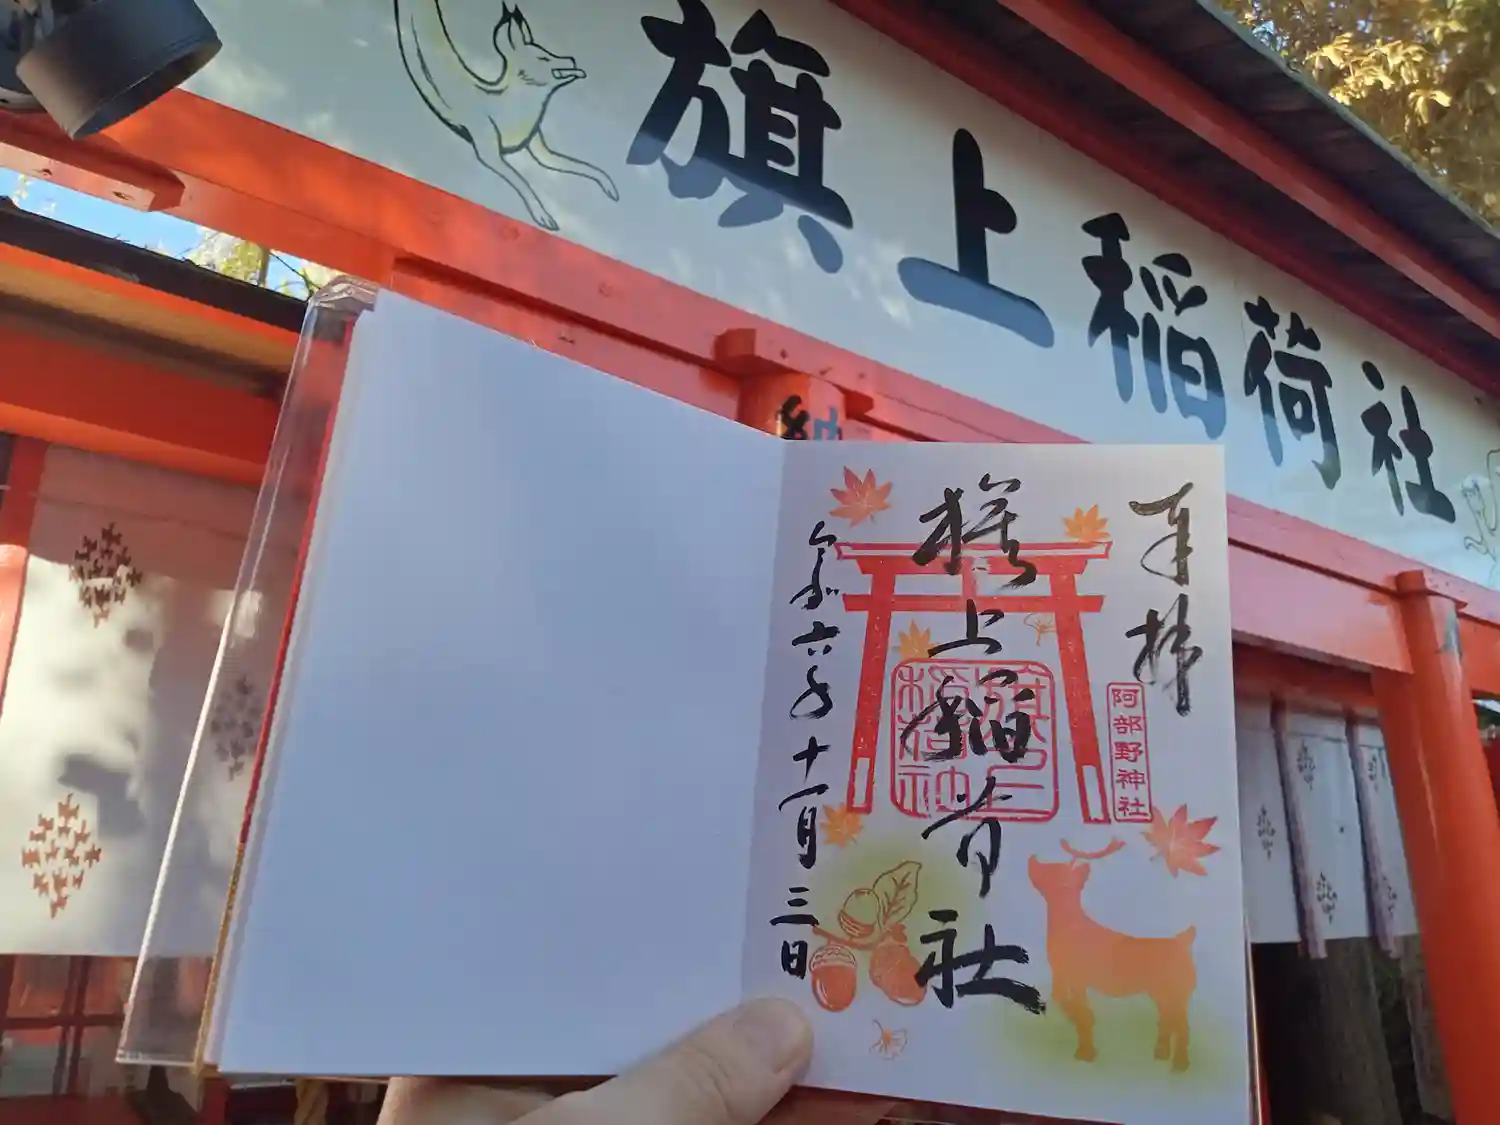 旗上稲荷社
奉拝
旗上稲荷社
旗上稲荷社
阿部野神社
令和六年十一月三日